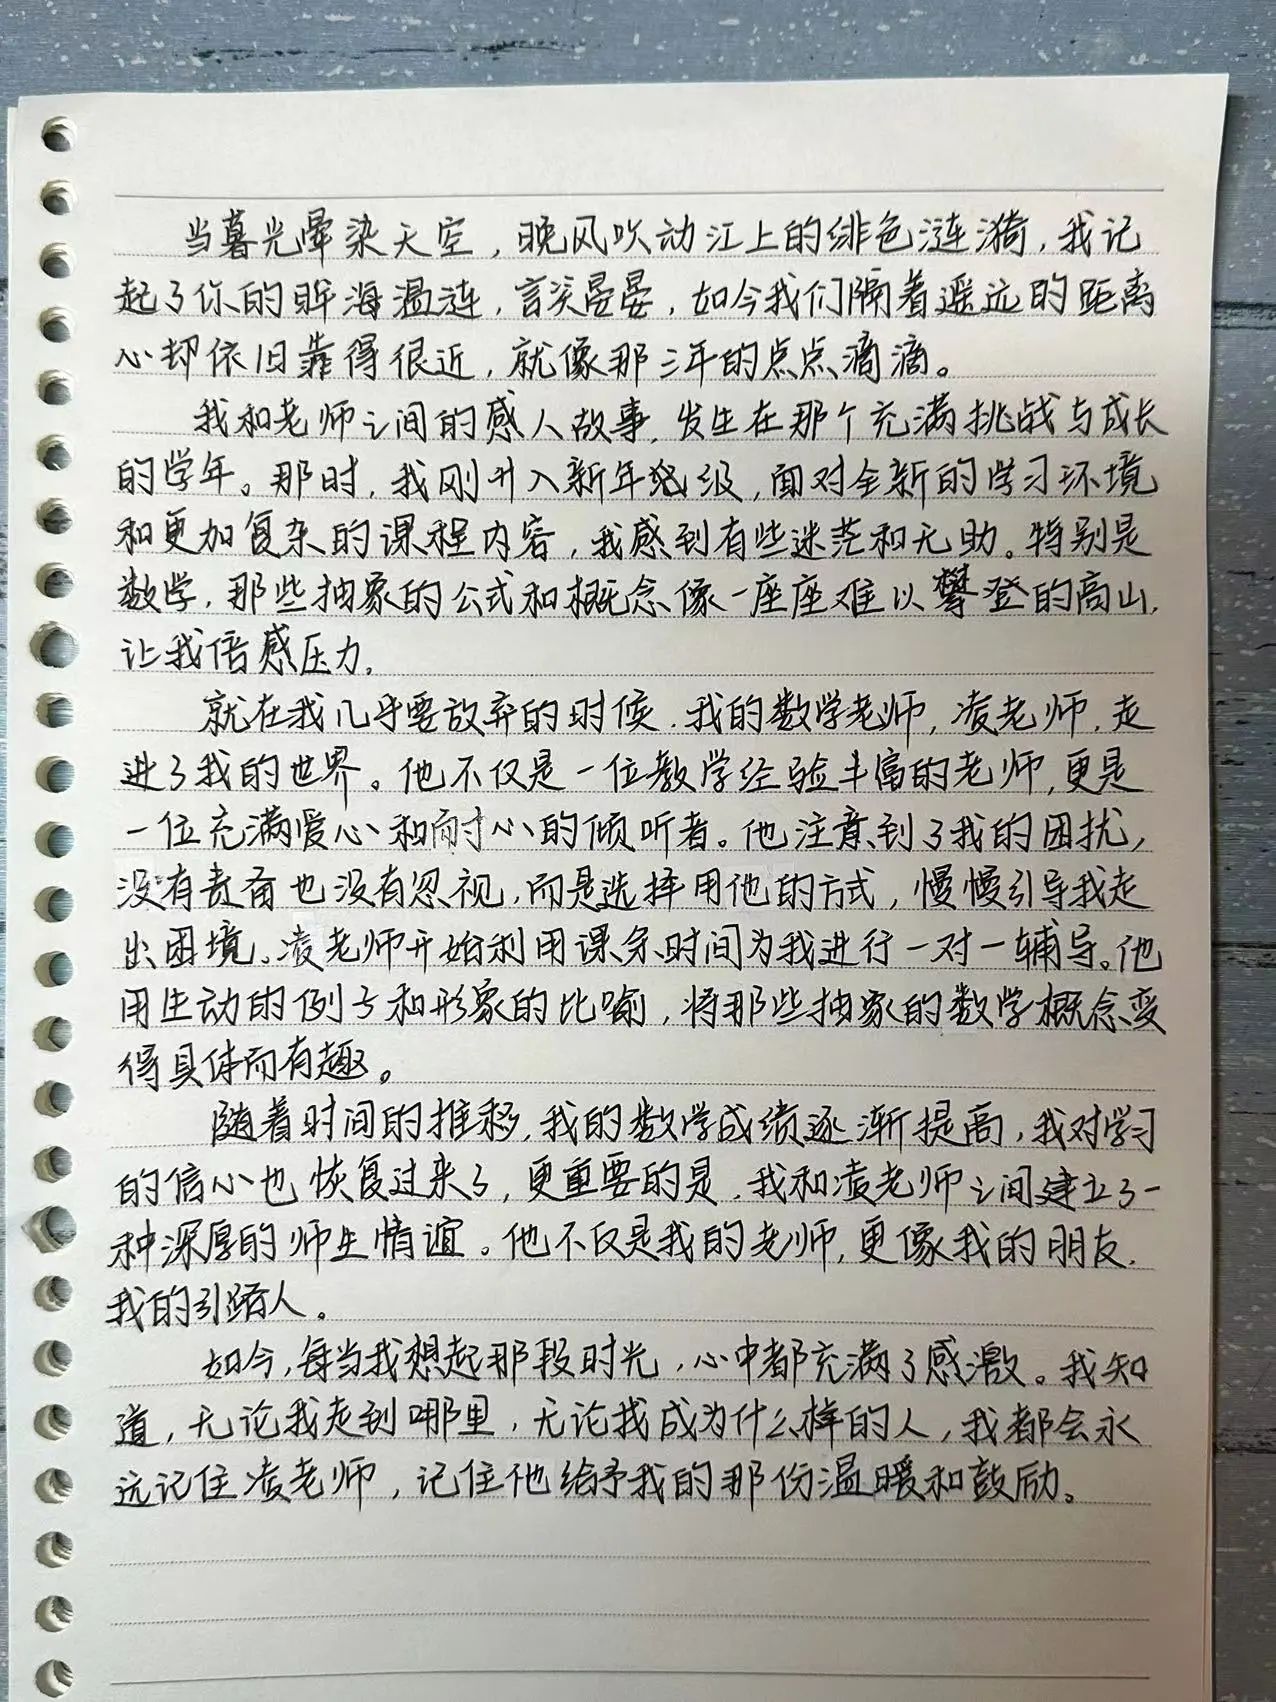 当暮光晕染天空，晚风吹动江上的绯色涟漪，我记
起了你的眸海温涟，言笑晏晏，如今我们隔着遥远的距离
心却依旧靠得很近，就像那三年的点点滴滴。
我和老师之间的感人故事，发生在那个充满挑战与成长
的学年。那时，我刚升入新年级，面对全新的学习环境
和更加复杂的课程内容，我感到有些迷茫和无助。特别是
数学，那些抽象的公式和概念像一座座难以攀登的高山，
让我倍感压力，
就在我几乎要放弃的时候，我的数学老师，凌老师，走
进了我的世界。他不仅是一位教学经验丰富的老师，更是
一位充满爱心和耐心的倾听者。他注意到了我的困扰，
没有责备也没有忽视，而是选择用他的方式，慢慢引导我走
出困境。凌老师开始利用课余时间为我进行一对一辅导。他
用生动的例子和形象的比喻，将那些抽象的数学概念变
得具体而有趣。
随着时间的推移，我的数学成绩逐渐提高，我对学习
的信心也恢复过来了，更重要的是，我和凌老师之间建立了一
种深厚的师生情谊。他不仅是我的老师，更像我的朋友，
我的引路人。
如今，每当我想起那段时光，心中都充满了感激。我知
道，无论我走到哪里，无论我成为什么样的人，我都会永
远记住凌老师，记住他给予我的那份温暖和鼓励。